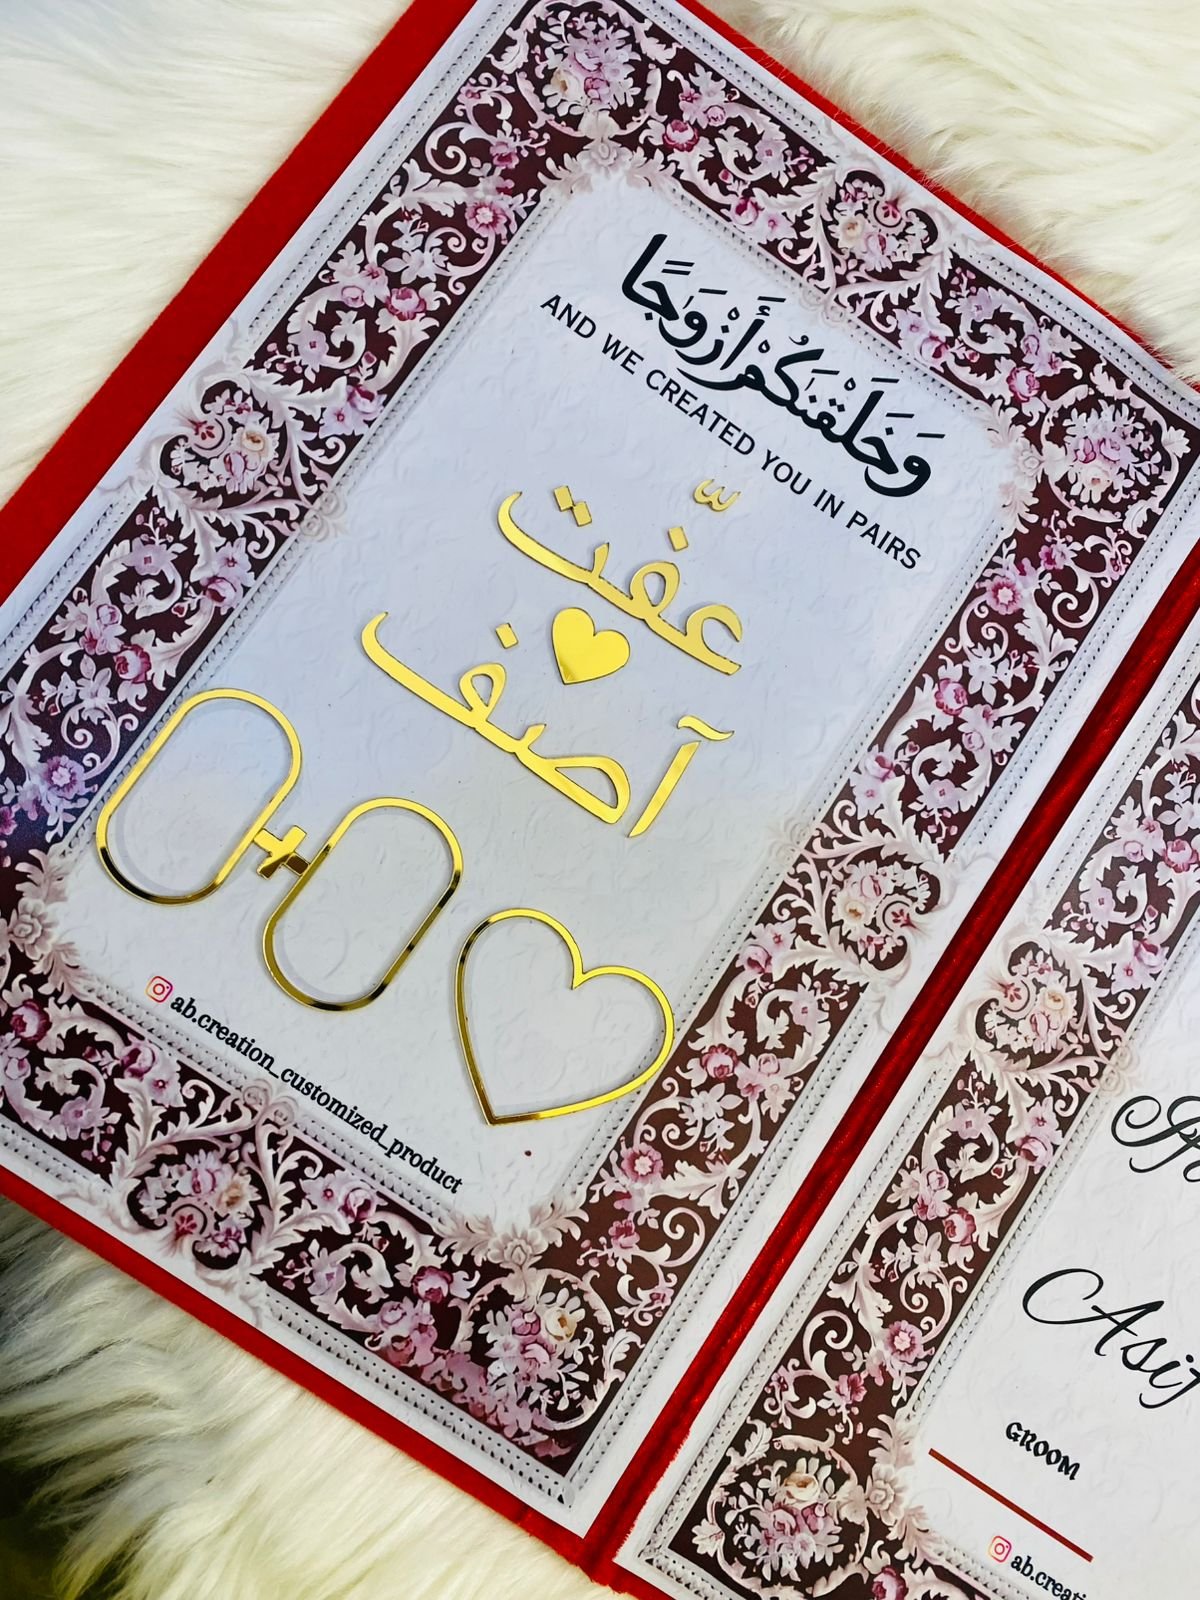 وَخَلَقْنَٰكُمْ أَزْوَٰجًا
AND WE CREATED YOU IN PAIRS
عفّت
آصف
ab.creation_customized_product
Asif
GROOM